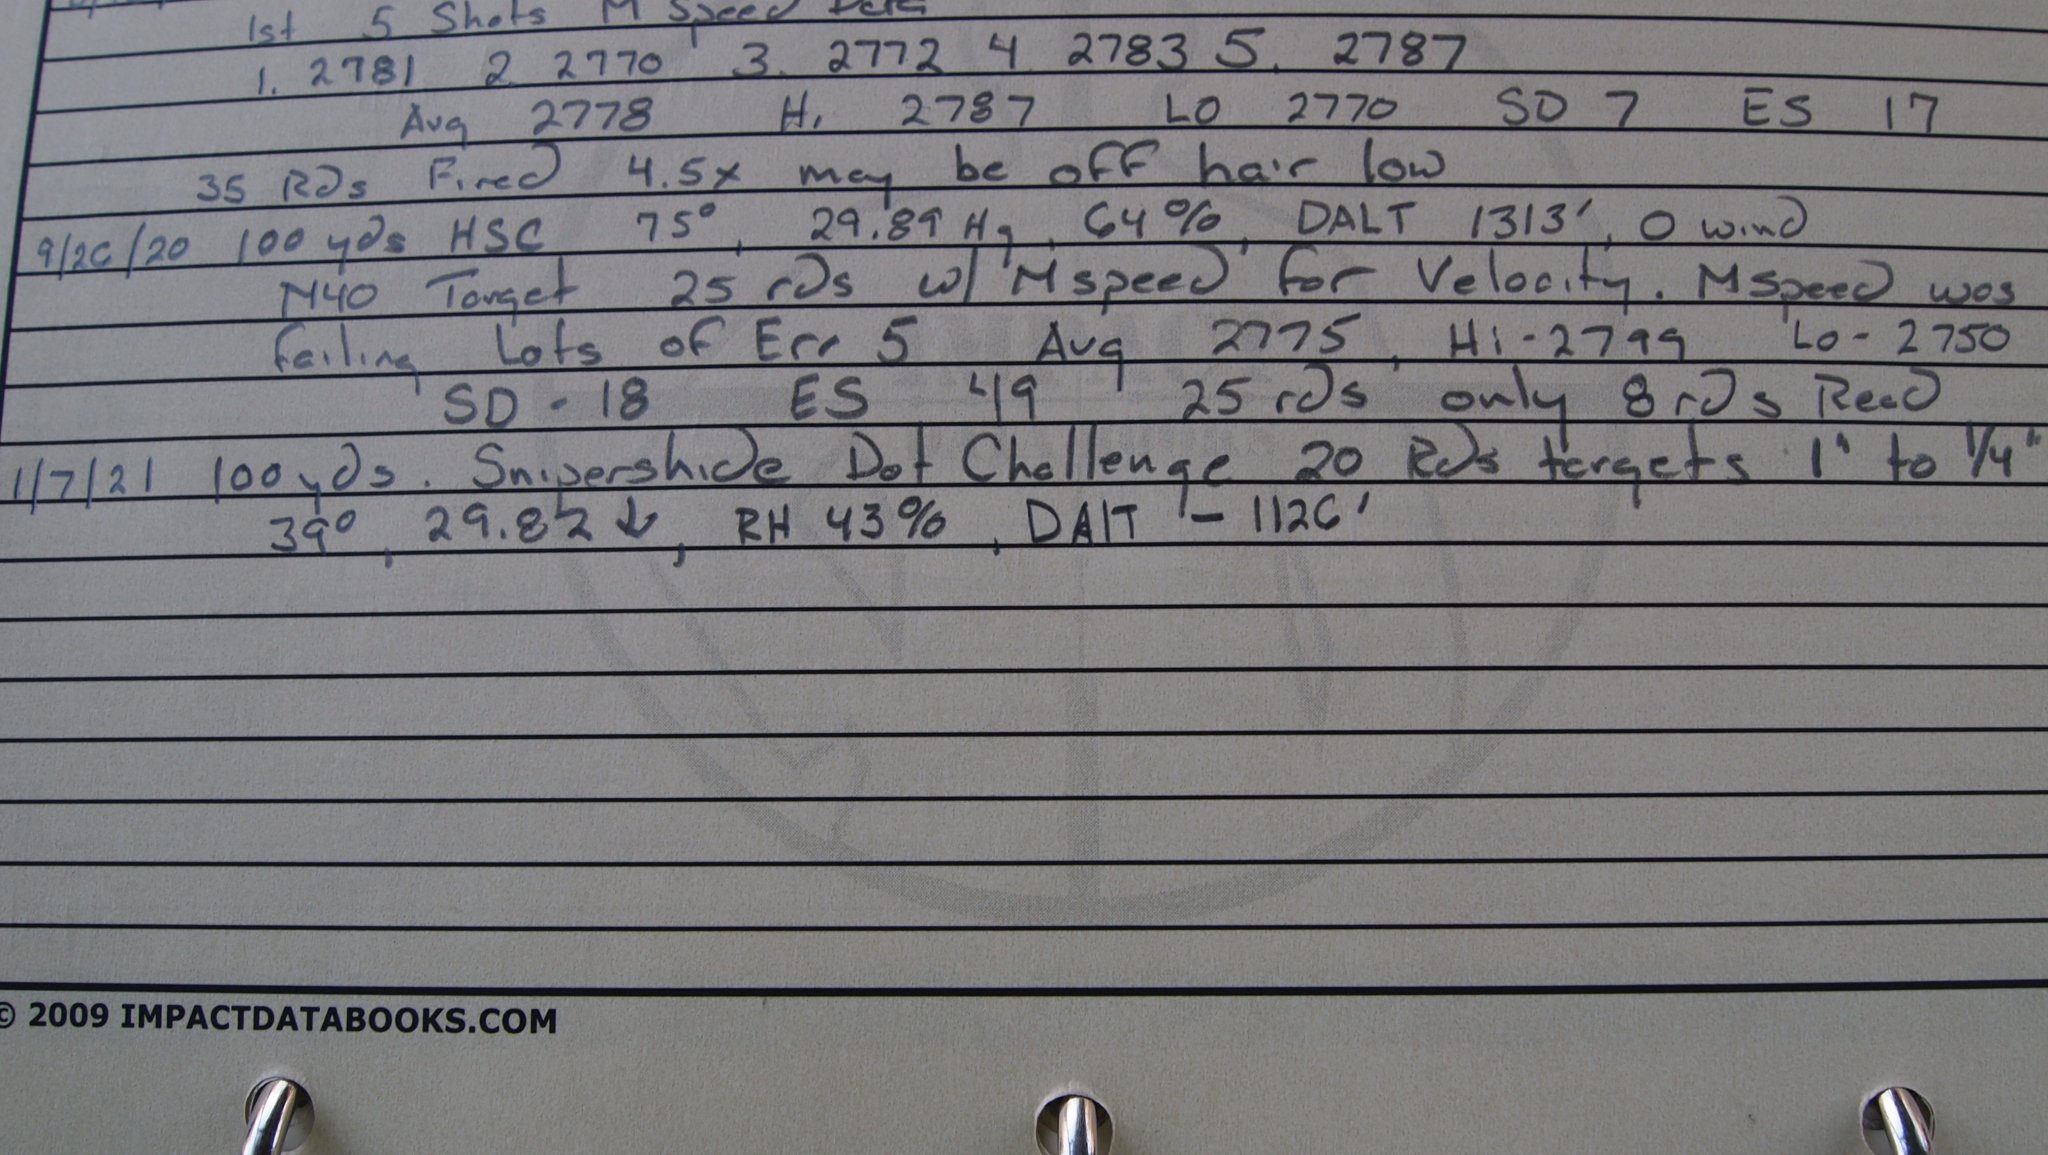 1st 5 Shots M Speed Data
1. 2781 2 2770 3. 2772 4 2783 5. 2787
Avg 2778 Hi 2787 LO 2770 SD 7 ES 17
35 RDs Fired 4.5x may be off hair low
9/26/20 100 yds HSC 75°, 29.89 Hg, 64%, DALT 1313', 0 wind
M40 Target 25 rds w/ Mspeed for Velocity. MSpeed was
failing Lots of Err 5 Avg 2775, Hi-2799 Lo-2750
SD - 18 ES 49 25 rds only 8 rds Read
1/7/21 100 yds. Snipershide Dot Challenge 20 Rds targets 1" to 1/4"
39°, 29.82 ↓, RH 43%, DAlT - 1126'
© 2009 IMPACTDATABOOKS.COM